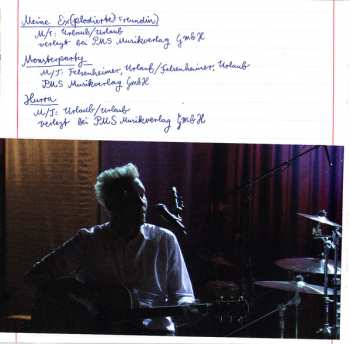 Meine Ex(plodierte) Freundin)
M/T: Urlaub/Urlaub
verlegt bei PMS Musikverlag GmbH
Monsterparty
M/T: Felsenheimer, Urlaub/Felsenheimer, Urlaub
PMS Musikverlag GmbH
Hurra
M/T: Urlaub/Urlaub
verlegt bei PMS Musikverlag GmbH